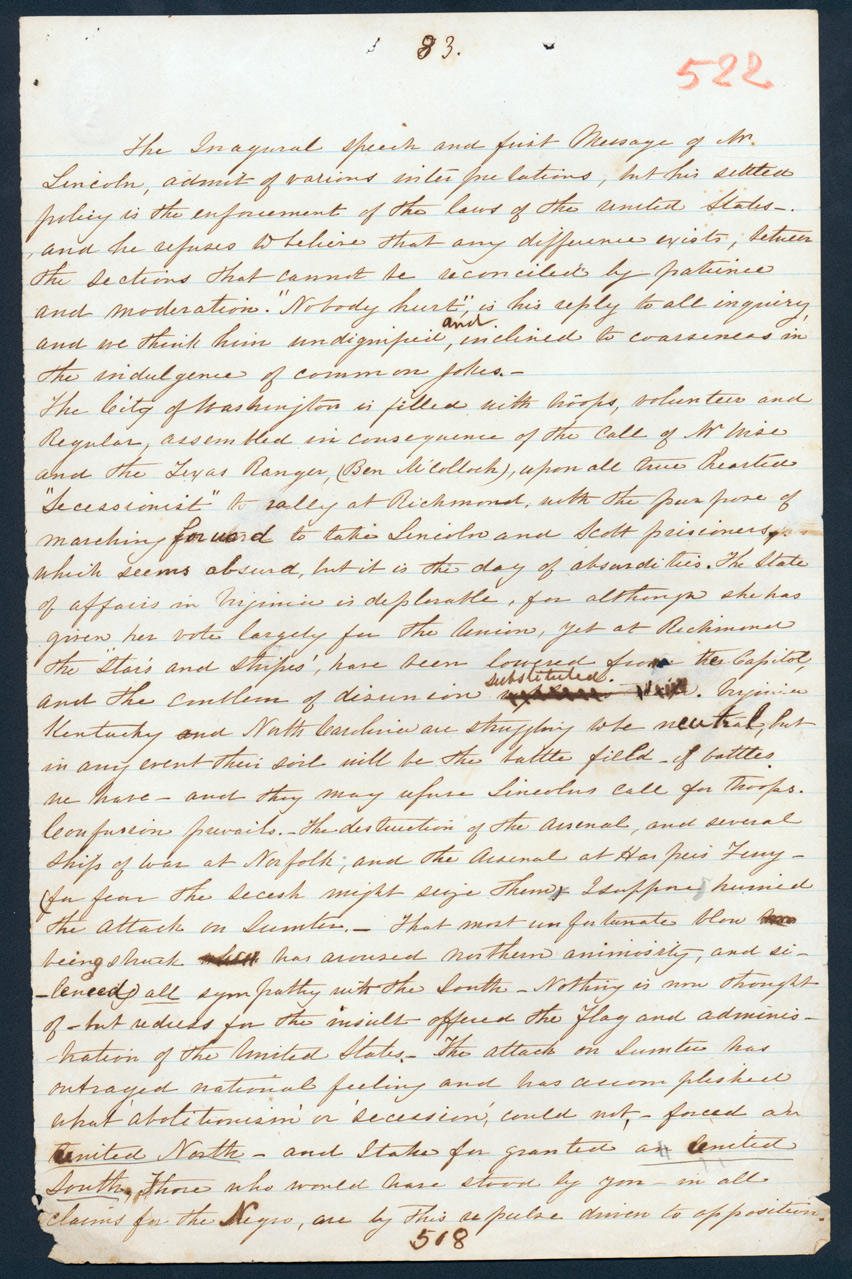 83.
522
The Inagural speech and first Message of Mr.
Lincoln, admit of various interpretations, but his settled
policy is the enforcement of the laws of the United States-.
and he refuses to believe that any difference exists, between
the sections that cannot be reconciled by patience
and moderation. "Nobody hurt", is his reply to all inquiry,
and we think him undignified, and inclined to coarseness in
the indulgence of common jokes.-
The City of Washington is filled with troops, volunteer and
Regular, assembled in consequence of the call of Mr Wise
and the Texas Ranger, (Ben McColloch), upon all true hearted
"Secessionist" to rally at Richmond, with the purpose of
marching forward to take Lincoln and Scott prisioners,
which seems absurd, but it is the day of absurdities. The State
of affairs in Virginia is deplorable, for although she has
given her vote largely for the Union, yet at Richmond
the 'Stars and Stripes', have been lowered from the Capitol,
and the emblem of disunion substituted. Virginia
Kentucky and North Carolina are struggling to be neutral, but
in any event their soil will be the battle field - if battles
we have - and they may refuse Lincolns call for troops.
Confusion prevails. - The destruction of the Arsenal, and several
Ships of war at Norfolk, and the Arsenal at Harpers Ferry -
(for fear the secesh might seize them) I suppose hurried
the attack on Sumter. - That most unfortunate blow
being struck has aroused northern animosity, and si-
-lenced all sympathy with the South - Nothing is now thought
of - but redress for the insult offered the Flag and adminis-
-tration of the United States. - The attack on Sumter has
outraged national feeling and has accomplished
what 'abolitionism' or 'secession', could not, - forced an
United North - and I take for granted a United
South. Those who would have stood by you - in all
claims for the Negro, are by this repulse driven to opposition.
518